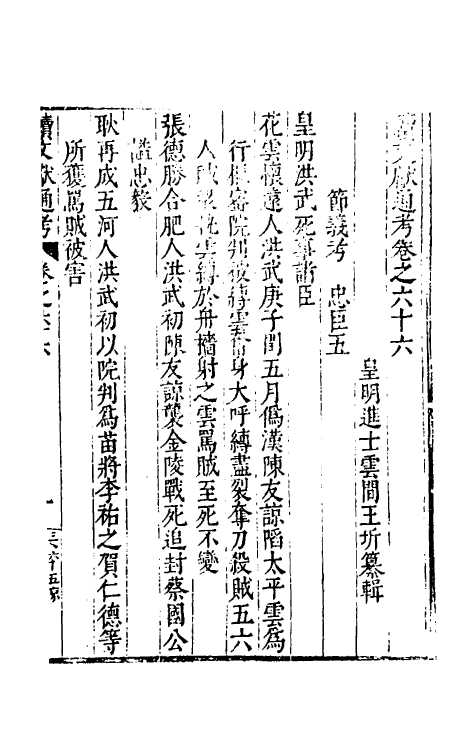 續文獻通考卷之六十六
皇明進士雲間王圻纂輯
節義考 忠臣五
皇明洪武死事諸臣
花雲懷遠人洪武庚子閏五月僞漢陳友諒䧟太平雲爲
行樞密院判被縛雲奮身大呼縛盡裂奪刀殺賊五六
人賊縛於舟檣射之雲罵賊至死不變
張德勝合肥人洪武初陳友諒襲金陵戰死追封蔡國公
謚忠毅
耿再成五河人洪武初以院判爲苗將李祐之賀仁德等
所獲罵賊被害
續文獻通考 卷之六六 一